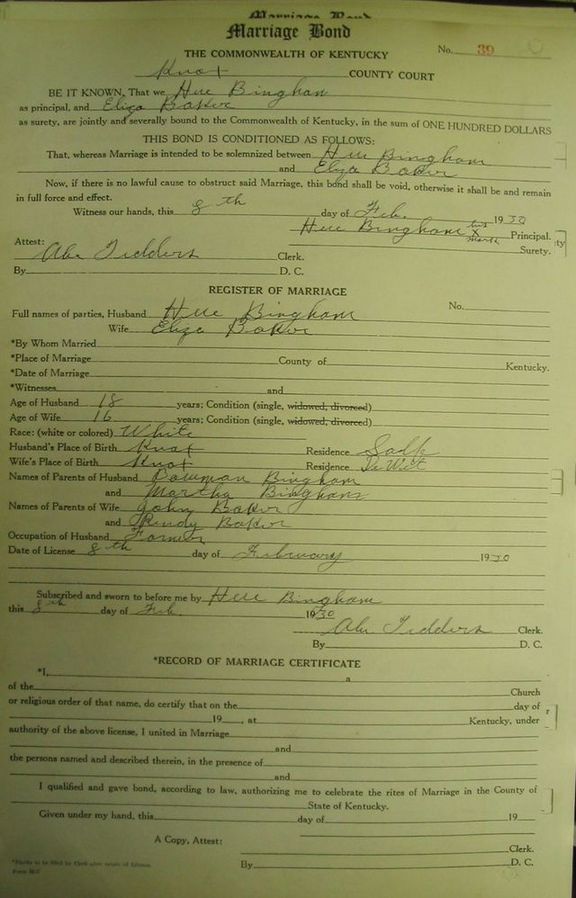 Marriage Bond
Marriage Bond
THE COMMONWEALTH OF KENTUCKY
No. 39
Knox COUNTY COURT
BE IT KNOWN, That we Bingham
as principal, and Eliza Baker
as surety, are jointly and severally bound to the Commonwealth of Kentucky, in the sum of ONE HUNDRED DOLLARS
THIS BOND IS CONDITIONED AS FOLLOWS:
That, whereas Marriage is intended to be solemnized between Bingham
and Eliza Baker
Now, if there is no lawful cause to obstruct said Marriage, this bond shall be void, otherwise it shall be and remain
in full force and effect.
Witness our hands, this 8th day of Feb. 1930
Bingham his X mark Principal.
Surety.
Attest:
Clerk.
By D. C.
REGISTER OF MARRIAGE
No.
Full names of parties, Husband Bingham
Wife Eliza Baker
*By Whom Married
*Place of Marriage County of Kentucky.
*Date of Marriage
*Witnesses and
Age of Husband 18 years; Condition (single, widowed, divorced)
Age of Wife 16 years; Condition (single, widowed, divorced)
Race: (white or colored) White
Husband's Place of Birth Knox Residence
Wife's Place of Birth Knox Residence DeWitt
Names of Parents of Husband Bingham
and Martha Bingham
Names of Parents of Wife John Baker
and Baker
Occupation of Husband Farmer
Date of License 8th day of February 1930
Subscribed and sworn to before me by Bingham
this 8th day of Feb. 1930
Clerk.
By D. C.
*RECORD OF MARRIAGE CERTIFICATE
*I, a
of the Church
or religious order of that name, do certify that on the day of
19 , at Kentucky, under
authority of the above license, I united in Marriage
and
the persons named and described therein, in the presence of
and
I qualified and gave bond, according to law, authorizing me to celebrate the rites of Marriage in the County of
State of Kentucky.
Given under my hand, this day of 19
A Copy, Attest:
Clerk.
By D. C.